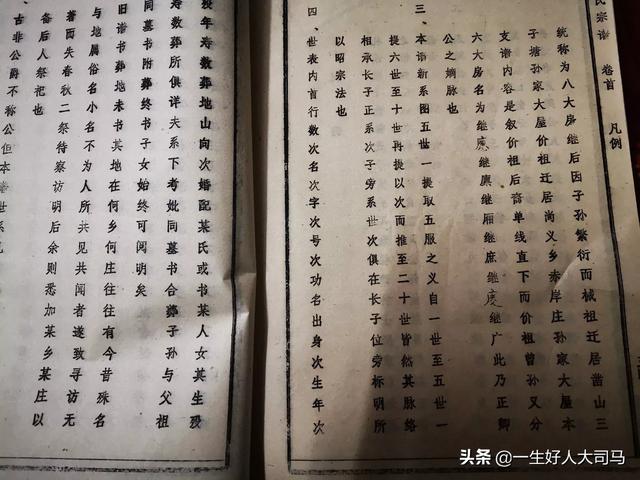 氏宗谱 卷首 凡例
统称为八大房继后因子孙繁衍而械祖迁居凿山三
子塘孙家大屋价祖迁居尚义乡赤岸庄孙家大屋本
支谱内容是叙价祖后裔单线直下而价祖曾孙又分
六大房名为继 继 继厢继庶继 继广此乃正卿
公之嫡脉也
三 本谱新系图五世一提取五服之义自一世至五世一
提六世至十世再提以次而推至二十世皆然其脉络
相承长子正系次子旁系世次俱在长子位旁标明所
以昭宗法也
四 世表内首行数次名次字次号次功名出身次生年次
殁年寿数葬地山向次婚配某氏或书某人女其生殁
寿数葬所俱详夫系下考妣同墓书合葬子孙与父祖
同墓书附葬终书子女始终可阅明矣
旧谱书葬地未书其地在何乡何庄往往有今昔殊名
与地属俗名小名不为人所共见共闻者遂致寻访无
著而失春秋二祭待察访明后余则悉加某乡某庄以
备后人祭祀也
古非公爵不称公但本谱世系
头条 @一生好人大司马